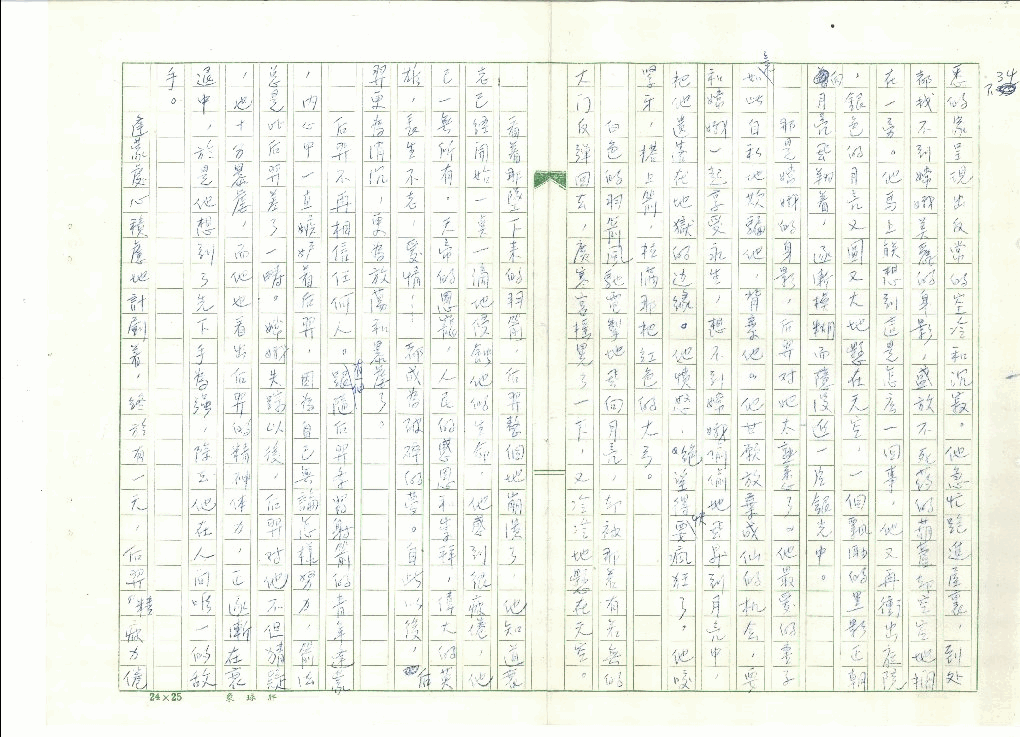 34
悉的家呈現出反常的空冷和沉寂。他急忙跑進屋裏，到处
都找不到嫦娥美麗的身影，盛放不死葯的葫蘆却空空地擱
在一旁。他馬上联想到這是怎広一回事，他又再衝出庭院
，銀色的月亮又圓又大地懸在天空，一個飄動的黑影正朝
向月亮飛翔着，逐漸模糊而隱沒進一片銀光中。
那是嫦娥的身影，后羿对她太熟悉了。他最爱的妻子
竟如此自私地欺騙他，背棄他。他甘願放棄成仙的机会，要
和嫦娥一起享受永生，想不到嫦娥偷偷地飛昇到月亮中，
把他遺棄在地獄的边緣。他憤怒，絕望得快要瘋狂了。他咬
緊牙，搭上箭，拉滿那把紅色的大弓。
白色的羽箭風馳電掣地飛向月亮，却被那若有若無的
大门反弹回去，廣寒宮摇晃了一下，又冷冷地懸在天空。
看着那墜下來的羽箭，后羿整個地崩潰了，他知道衰
老已経開始一点一滴地侵蝕他的生命，他感到很疲倦，他
已一無所有。天帝的恩寵，人民的感恩和崇拜，偉大的英
雄，長生不老，愛情……都成為破碎的夢。自此以後，后
羿更為消沉，更為放蕩和暴虐了。
后羿不再相信任何人。有個跟隨后羿学習射箭的青年逢蒙
，内心中一直嫉妒着后羿，因為自己無論怎樣努力，箭法
总是比后羿差了一畴。嫦娥失踪以後，后羿对他不但猜疑
，也十分暴虐，而他也看出后羿的精神体力，正逐漸在衰
退中，於是他想到了先下手為強，除去他在人间唯一的敌
手。
逢蒙處心積慮地計劃着，終於有一天，后羿精疲力倦
24×25